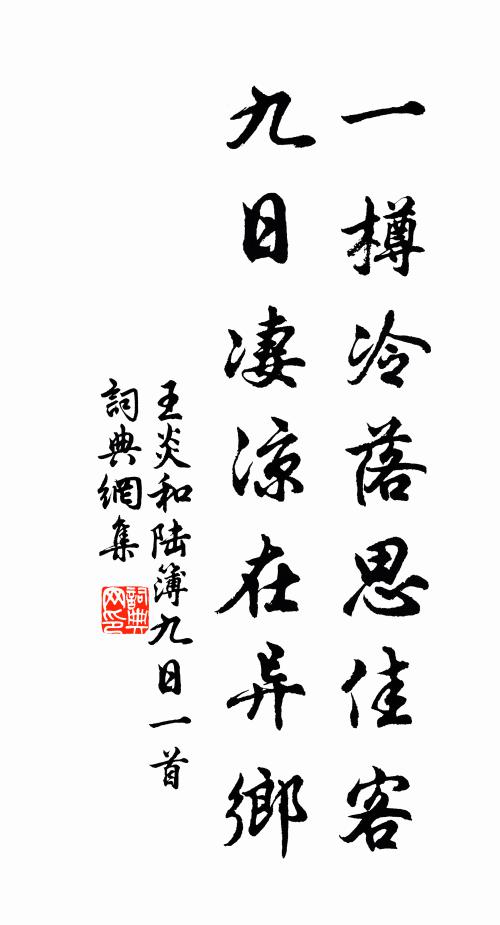 一樽冷落思佳客
九日凄涼在异鄉
王炎和陆簿九日一首
詞典網集
詞典网印